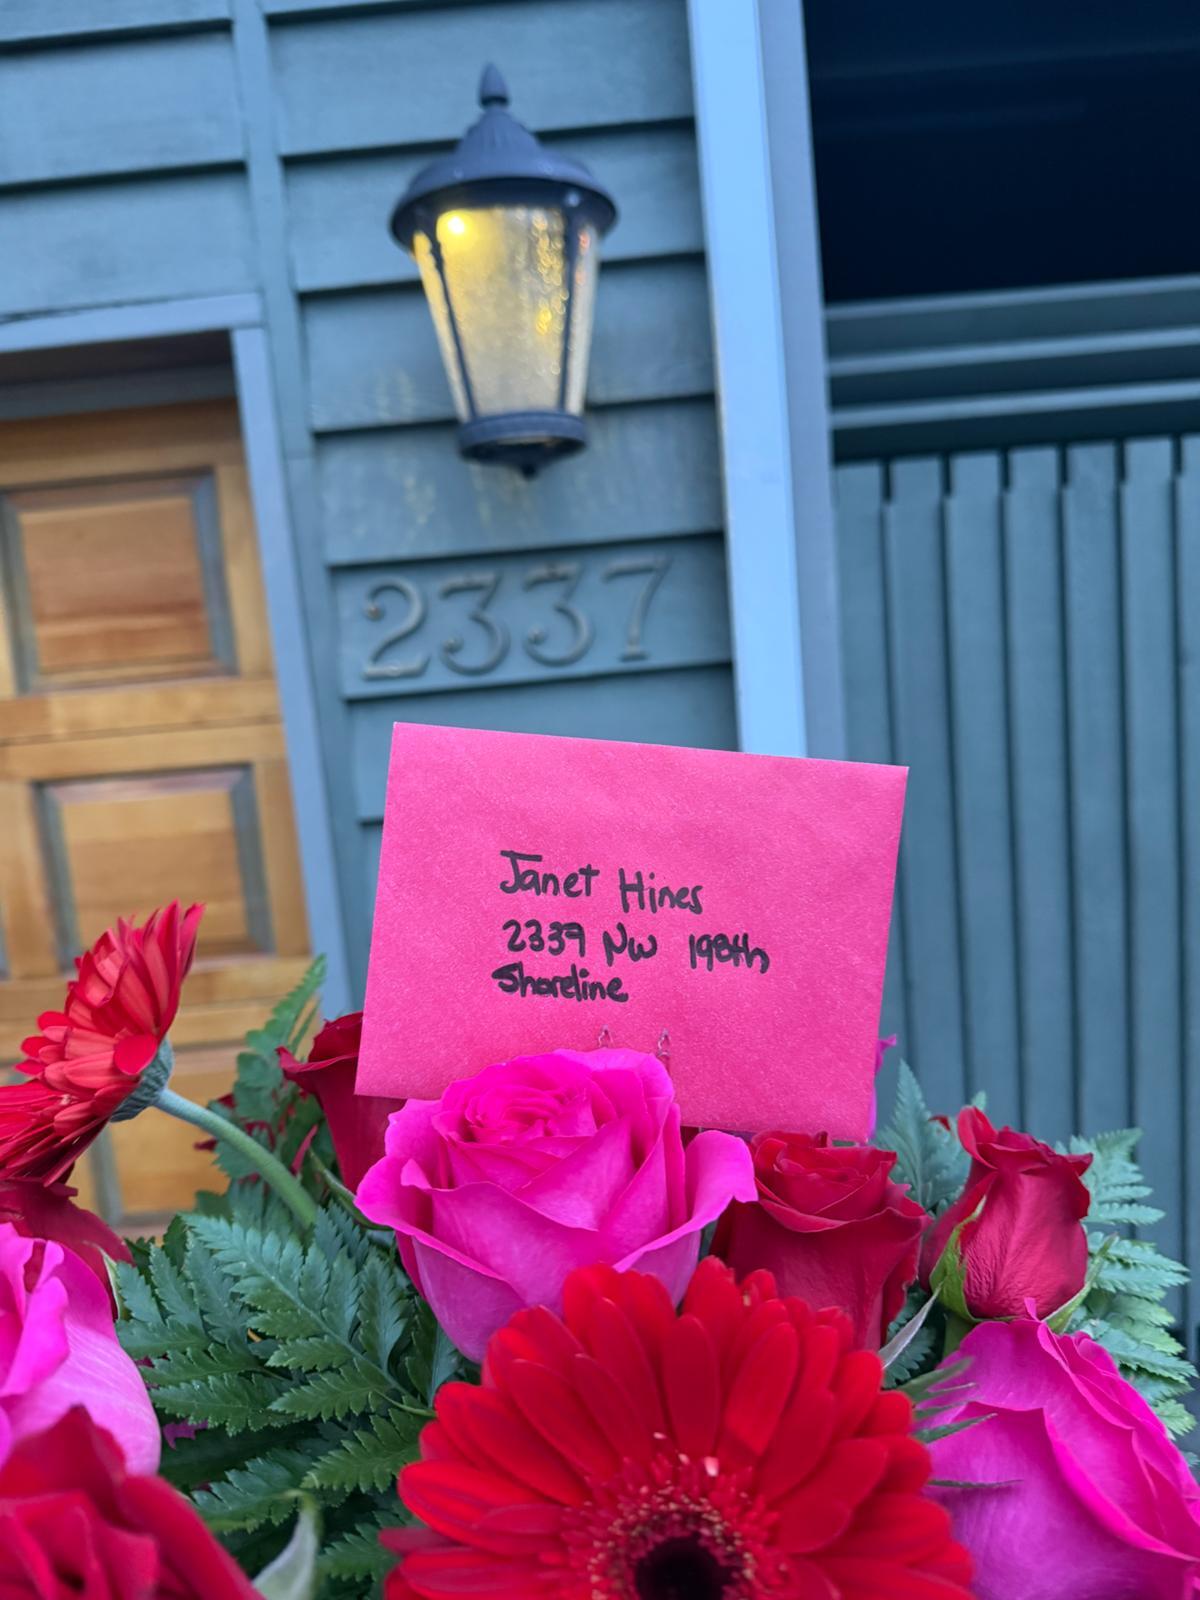 2337
Janet Hines
2337 NW 198th
Shoreline